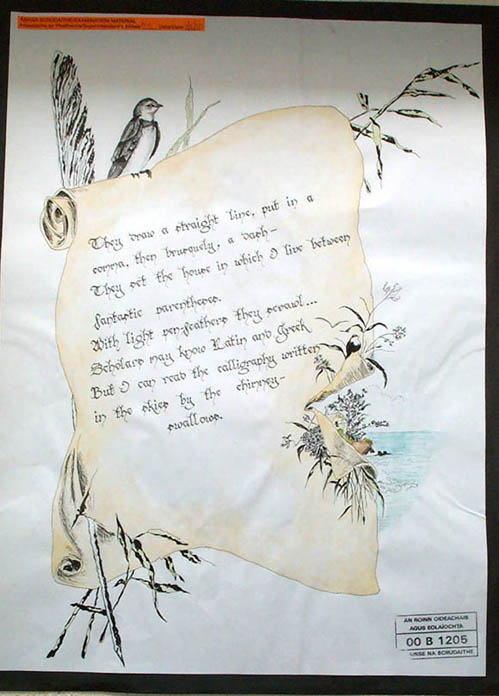 They draw a straight line, put in a
comma, then brusquely, a dash-
They set the house in which I live between
fantastic parentheses.
With light pen-feathers they scrawl...
Scholars may know Latin and Greek
But I can read the calligraphy written
in the skies by the chimney-
swallows.
AN ROINN OIDEACHAIS
AGUS EOLAÍOCHTA
00 B 1205
NA SCRÚDAITHE